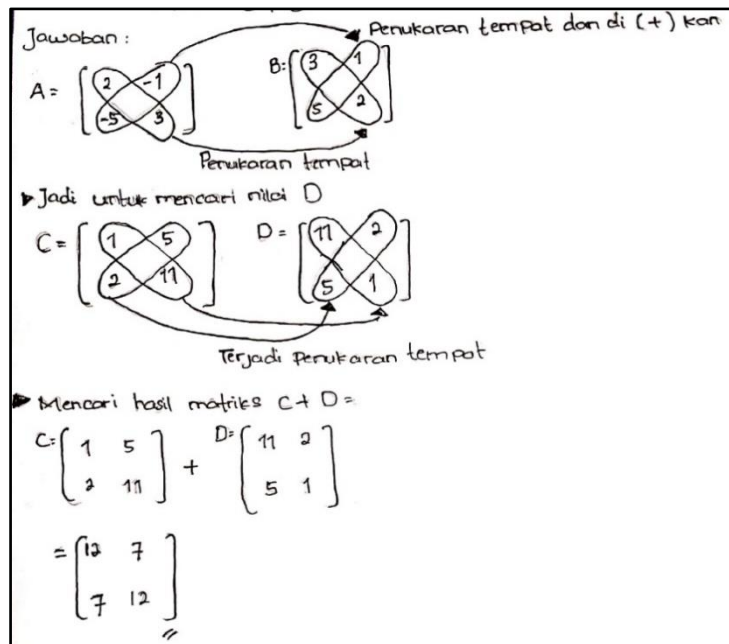 Jawaban : Penukaran tempat dan di (+) kan
A = [ 2 -1 B: [ 3 1
-5 3 ] 5 2 ]
Penukaran tempat
▶ Jadi untuk mencari nilai D
C = [ 1 5 D = [ 11 2
2 11 ] 5 1 ]
Terjadi Penukaran tempat
▶ Mencari hasil matriks C + D =
C: [ 1 5 D: [ 11 2
2 11 ] + 5 1 ]
= [ 12 7
7 12 ]